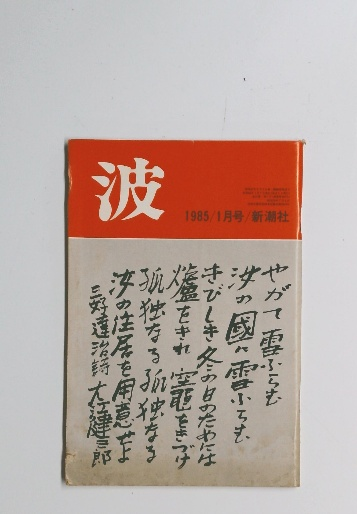 波
1985/1月号/新潮社
やがて雪ふらむ
汝の國に雪ふらむ
きびしき冬の日のためには
爐をきれ 竈をきづけ
孤独なる孤独なる
汝の住居を用意せよ
三好達治詩 大江健三郎